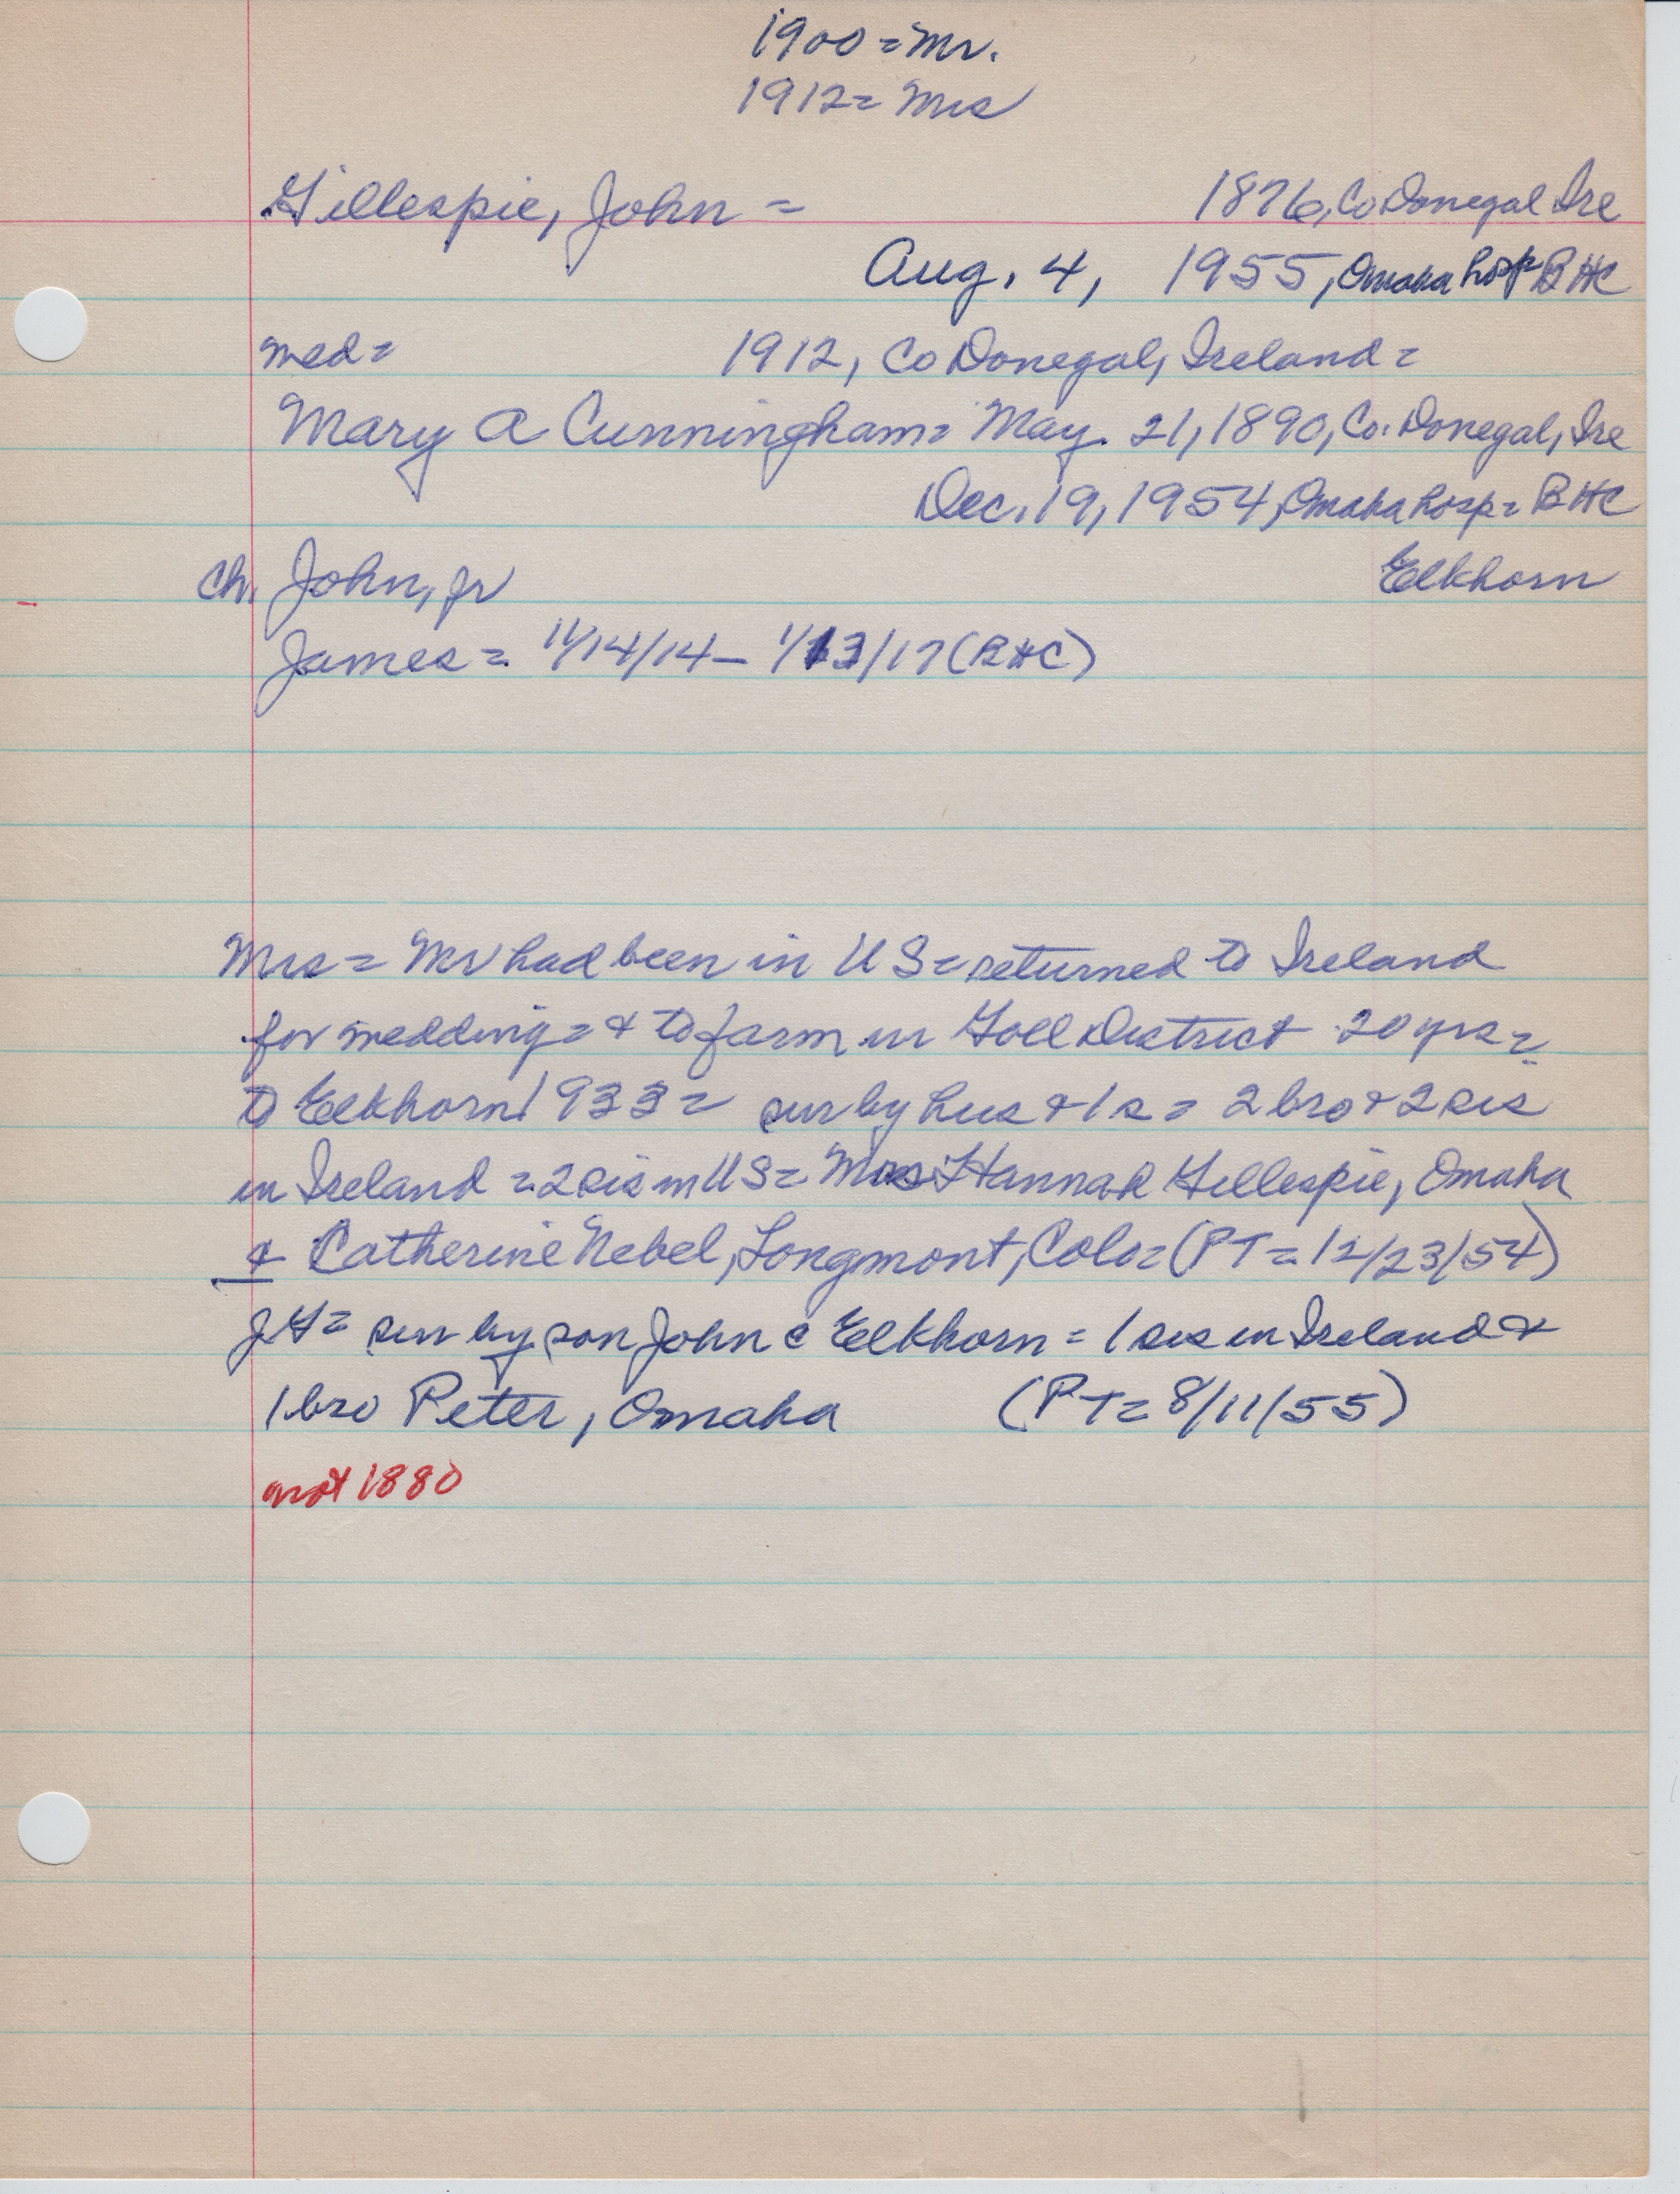 1900 = Mr.
1912 = Mrs
Gillespie, John = 1876, Co Donegal Ire
Aug. 4, 1955, Omaha hosp = BHC
med = 1912, Co Donegal, Ireland =
Mary A Cunningham = May. 21, 1890, Co. Donegal, Ire
Dec. 19, 1954, Omaha hosp = BHC
Elkhorn
ch. John, jr
James = 11/14/14 - 1/13/17 (BHC)
Mrs = Mr had been in US = returned to Ireland
for wedding = & to farm in Goll District 20 yrs =
to Elkhorn 1933 = sur by hus & 1 s = 2 bro & 2 sis
in Ireland = 2 sis in US = Mrs Hannah Gillespie, Omaha
& Catherine Nebel, Longmont, Colo = (PT = 12/23/54)
JG = sur by son John @ Elkhorn = 1 sis in Ireland &
1 bro Peter, Omaha (PT = 8/11/55)
not 1880